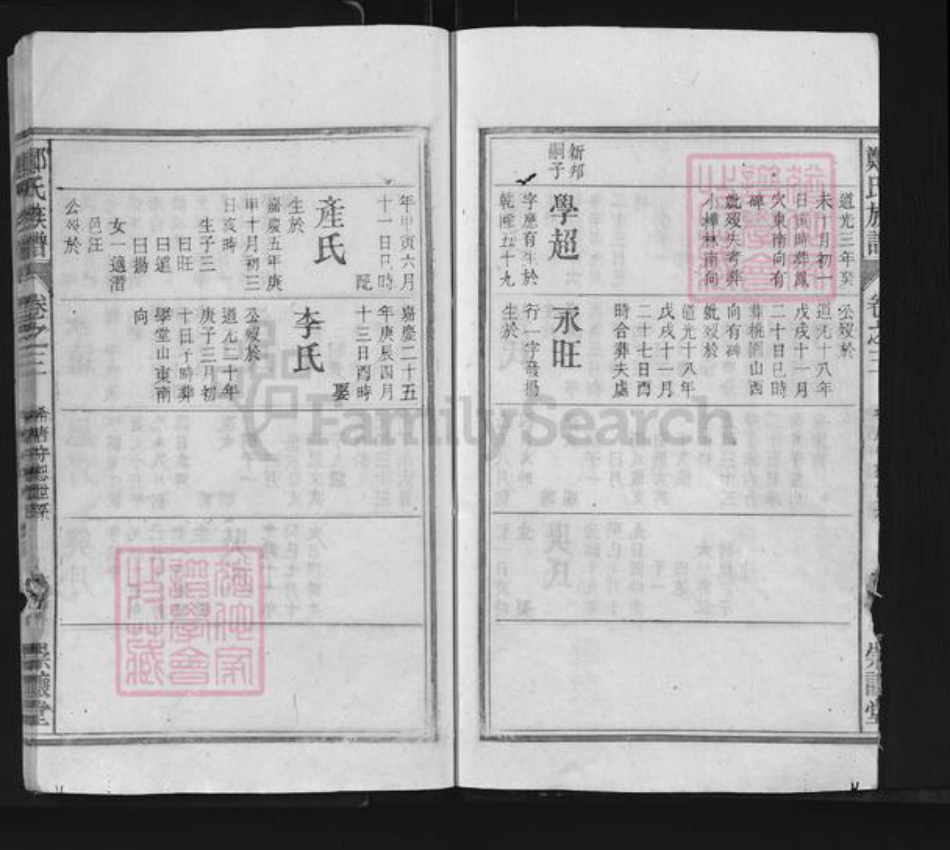 鄭氏族譜
卷之三
新邦
嗣子
道光三年癸
未十月初一
日寅時葬鳳
穴東南向有
碑
妣歿失考葬
小樟林南向
學超
字應有生於
乾隆五十九
公歿於
道光十八年
戊戌十一月
二十日巳時
葬桃園山西
向有碑
妣歿於
道光十八年
戊戌十一月
二十七日酉
時合葬夫處
永旺
行一字發揚
生於
年甲寅六月
十一日巳時
配
產氏
生於
嘉慶五年庚
申十月初三
日亥時
生子三
曰旺
曰遥
曰揚
女一適潛
邑汪
公歿於
嘉慶二十五
年庚辰四月
十三日酉時
娶
李氏
公歿於
道光二十年
庚子三月初
十日子時葬
學堂山東南
向
鄭氏族譜
卷之三
崇讓堂
FamilySearch